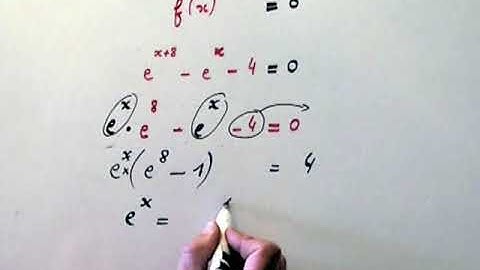 f(x) = 0
e^{x+8} - e^x - 4 = 0
e^x · e^8 - e^x - 4 = 0
e^x × (e^8 - 1) = 4
e^x =